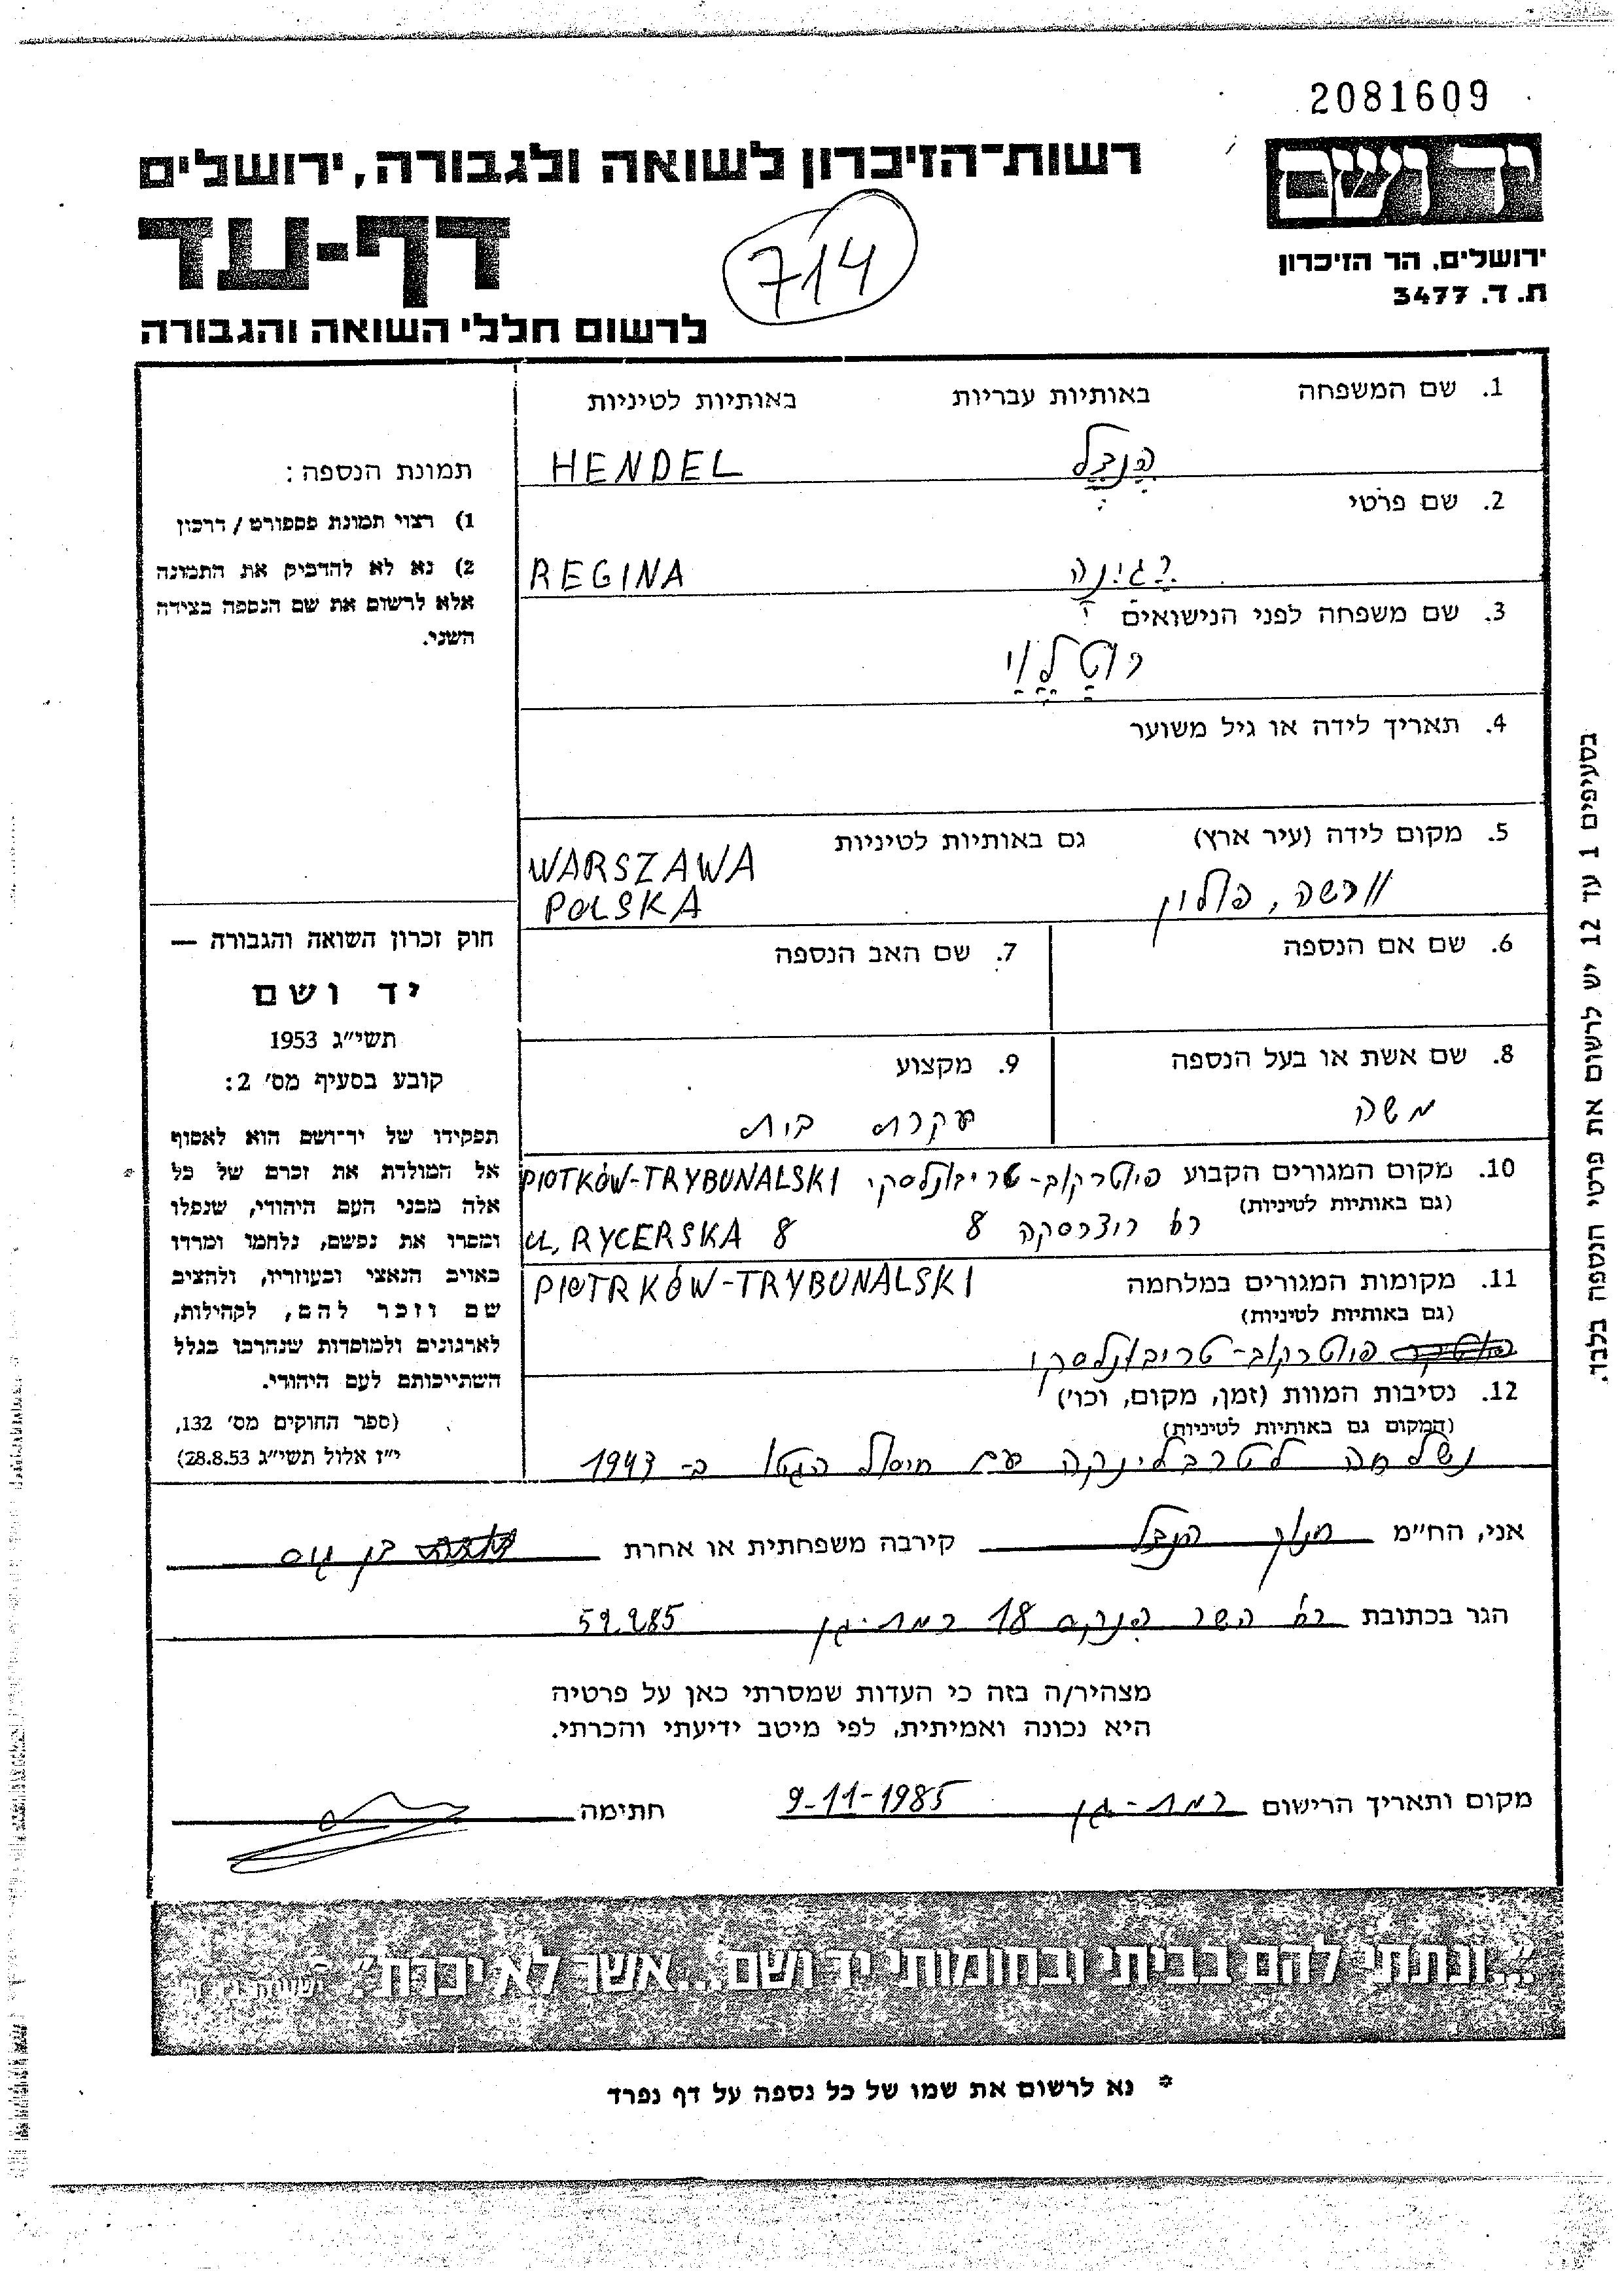 2081609
יד ושם
רשות־הזיכרון לשואה ולגבורה, ירושלים
דף-עד
714
ירושלים, הר הזיכרון
ת. ד. 3477
לרשום חללי השואה והגבורה
1. שם המשפחה באותיות עבריות באותיות לטיניות
הנדל HENDEL
2. שם פרטי
רגינה REGINA
3. שם משפחה לפני הנישואים
רוטלוי
4. תאריך לידה או גיל משוער
5. מקום לידה (עיר ארץ) גם באותיות לטיניות
וורשה, פולין WARSZAWA
POLSKA
6. שם אם הנספה
7. שם האב הנספה
8. שם אשת או בעל הנספה
משה
9. מקצוע
עקרת בית
10. מקום המגורים הקבוע פיוטרקוב-טריבונלסקי PIOTKÓW-TRYBUNALSKI
(גם באותיות לטיניות)
רח' ריצרסקה 8 UL, RYCERSKA 8
11. מקומות המגורים במלחמה PIOTRKÓW-TRYBUNALSKI
(גם באותיות לטיניות)
פיוטרקוב-טריבונלסקי
12. נסיבות המוות (זמן, מקום, וכו')
(המקום גם באותיות לטיניות)
נשלחה לטרבלינקה עם חיסול הגטו ב- 1943
תמונת הנספה:
1) רצוי תמונת פספורט/דרכון
2) נא לא להדביק את התמונה
אלא לרשום את שם הנספה בצידה
השני.
חוק זכרון השואה והגבורה —
יד ושם
תשי״ג 1953
קובע בסעיף מס׳ 2:
תפקידו של יד־ושם הוא לאסוף
אל המולדת את זכרם של כל
אלה מבני העם היהודי, שנפלו
ומסרו את נפשם, נלחמו ומרדו
באויב הנאצי ובעוזריו, ולהציב
שם וזכר להם, לקהילות,
לארגונים ולמוסדות שנחרבו בגלל
השתייכותם לעם היהודי.
(ספר החוקים מס׳ 132,
י״ז אלול תשי״ג 28.8.53)
בסעיפים 1 עד 12 יש לרשום את פרטי הנספה בלבד.
אני, הח״מ חנוך הנדל קירבה משפחתית או אחרת בן גיס
הגר בכתובת רח' השר 18 רמת-גן 52.285
מצהיר/ה בזה כי העדות שמסרתי כאן על פרטיה
היא נכונה ואמיתית, לפי מיטב ידיעתי והכרתי.
מקום ותאריך הרישום רמת-גן 9-11-1985 חתימה
״...ונתתי להם בביתי ובחומותי יד ושם...אשר לא יכרת״.
* נא לרשום את שמו של כל נספה על דף נפרד